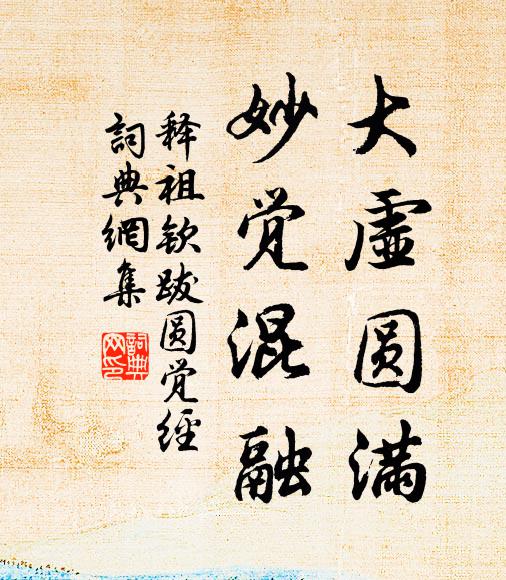 大虚圆满
妙觉混融
释祖钦跋圆觉经
詞典網集
詞典
网印